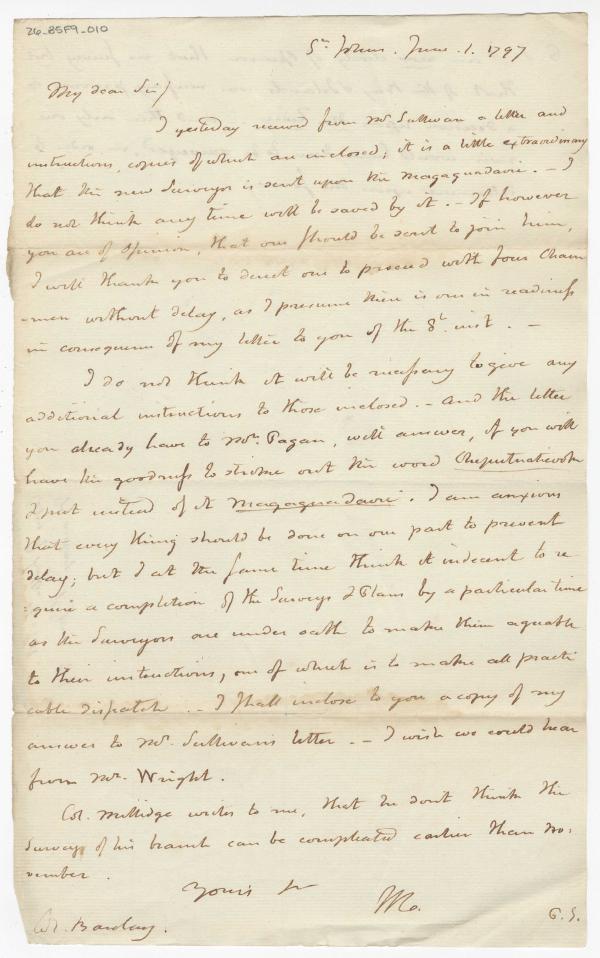 26_85F9_010
St. Johns. June. 1. 1797
My dear Sir/
I yesterday received from Mr. Sullivan a letter and
instructions, copies of which are inclosed; it is a little extraordinary
that the new Surveyor is sent upon the Magaguadavie. – I
do not think any time will be saved by it. – If however
you are of opinion, that one should be sent to join him,
I will thank you to direct one to proceed with four Chain
-men without delay, as I presume there is one in readiness
in consequence of my letter to you of the 8th. inst. –
I do not think it will be necessary to give any
additional instructions to those inclosed. – and the letter
you already have to Mr. Pagan, will answer, if you will
have the goodness to stroke out the word Cheputnaticook
& put instead of it Magaguadavie. I am anxious
that every thing should be done on our part to prevent
delay; but I at the same time think it indecent to re
-quire a completion of the Surveys & Plans by a particular time
as the Surveyors are under oath to make them agreable
to their instructions, one of which is to make all practi
cable dispatch. – I shall inclose to you a copy of my
answer to Mr. Sullivans letter. – I wish we could hear
from Mr. Wright.
Col. Millidge writes to me, that he dont think the
Survey of his branch can be compleated earlier than No-
vember.
Yours
Col. Barclay.